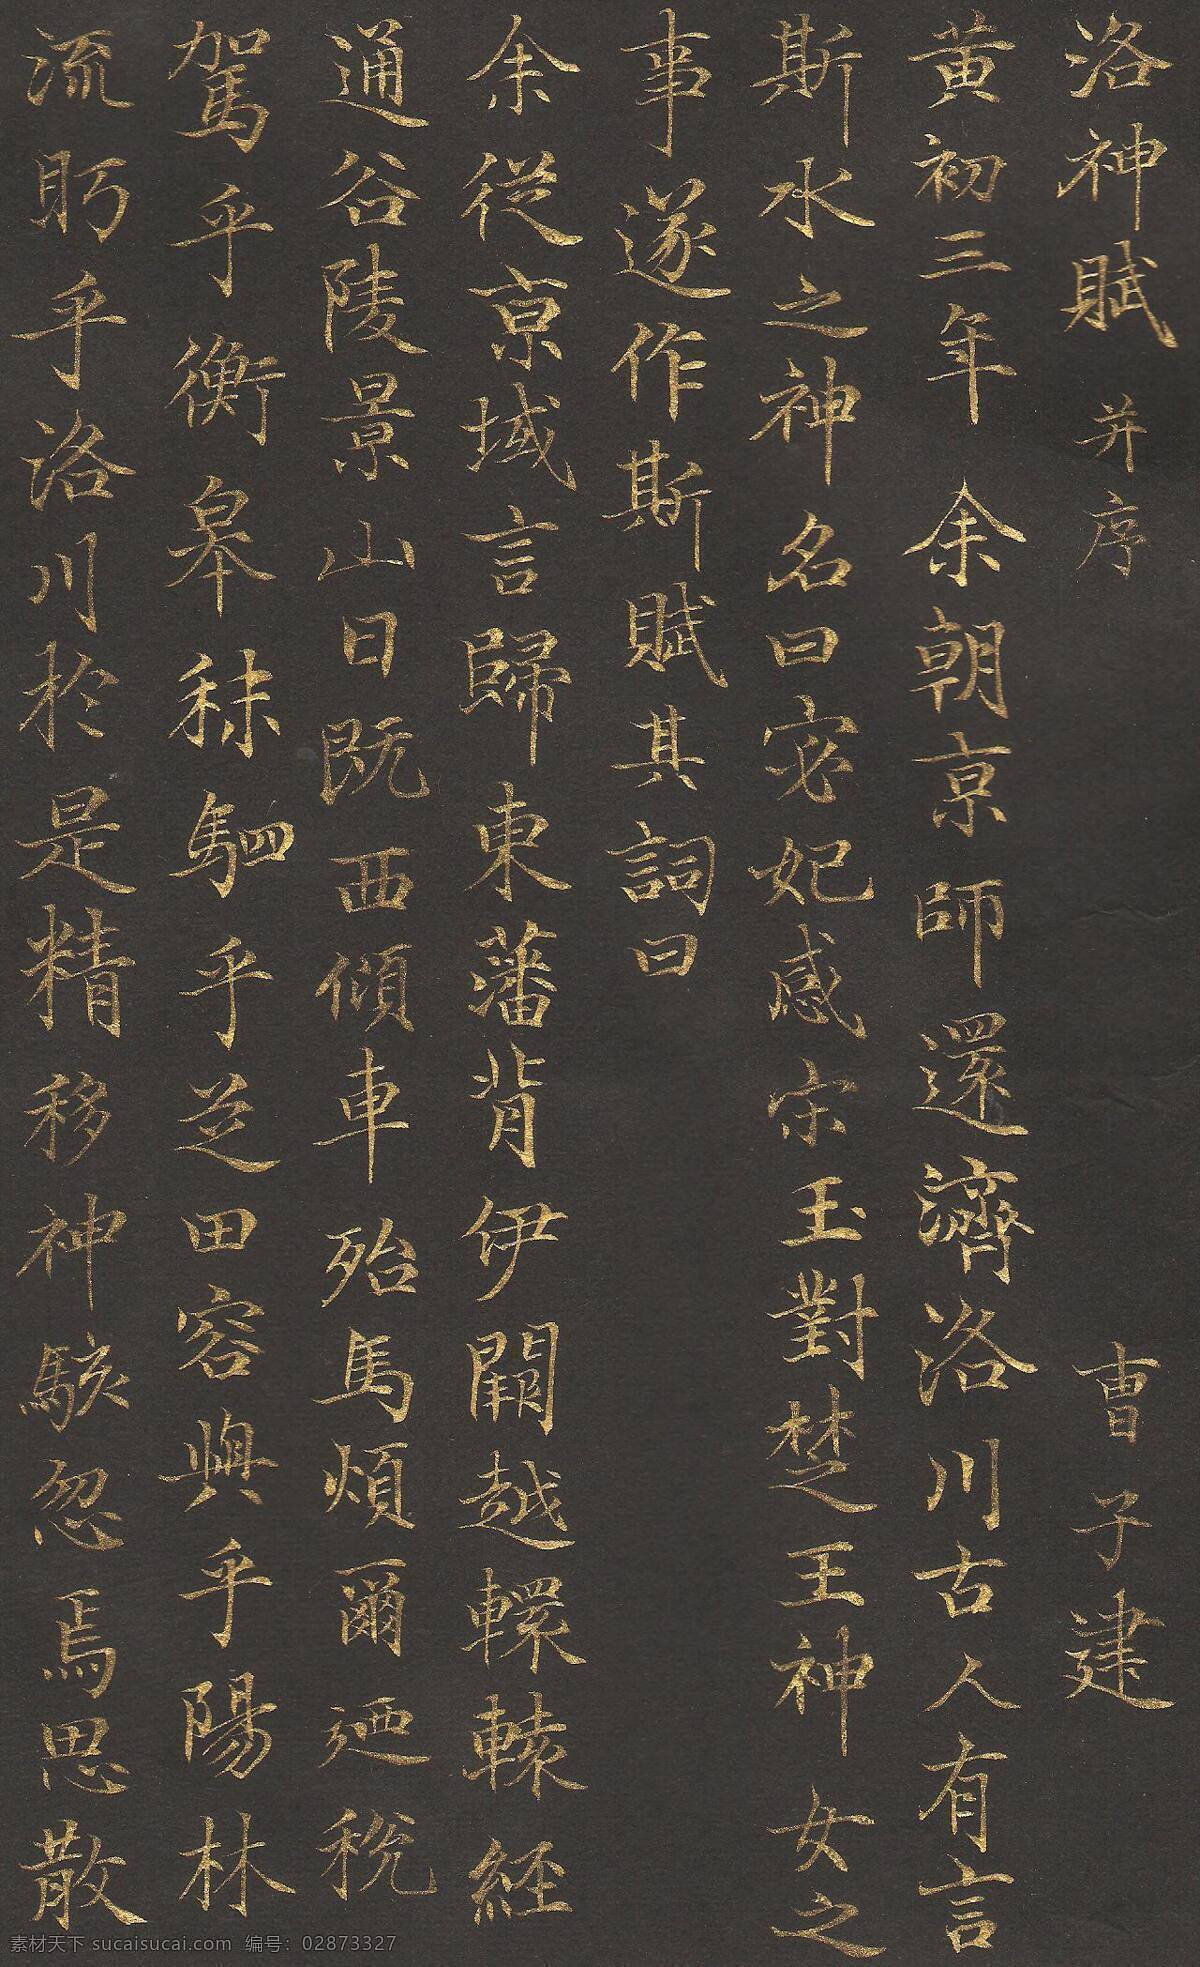 洛神賦 并序 曹子建
黄初三年余朝京師還濟洛川古人有言
斯水之神名曰宓妃感宋玉對楚王神女之
事遂作斯賦其詞曰
余從京域言歸東藩背伊闕越轘轅經
通谷陵景山日既西傾車殆馬煩爾迺稅
駕乎衡皋秣駟乎芝田容與乎陽林
流眄乎洛川於是精移神駭忽焉思散
素材天下 sucaisucai.com 编号：02873327